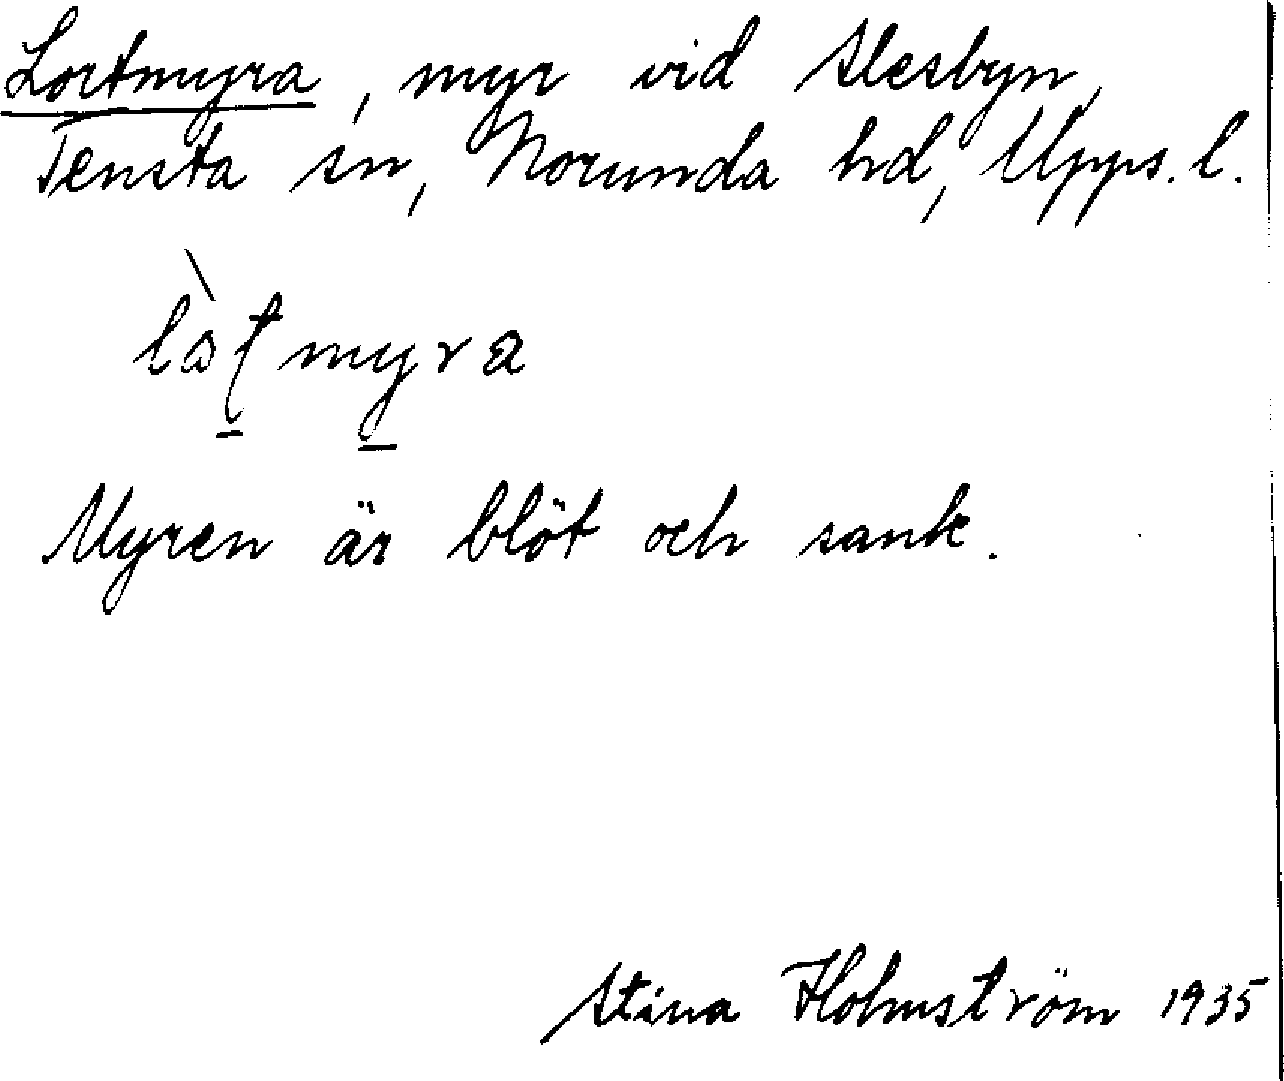 Lortmyra, myr vid Skesbyn,
Tensta sn, Norunda hd, Upps. l.
lòʈmyra
Myren är blöt och sank.
Stina Holmström 1935